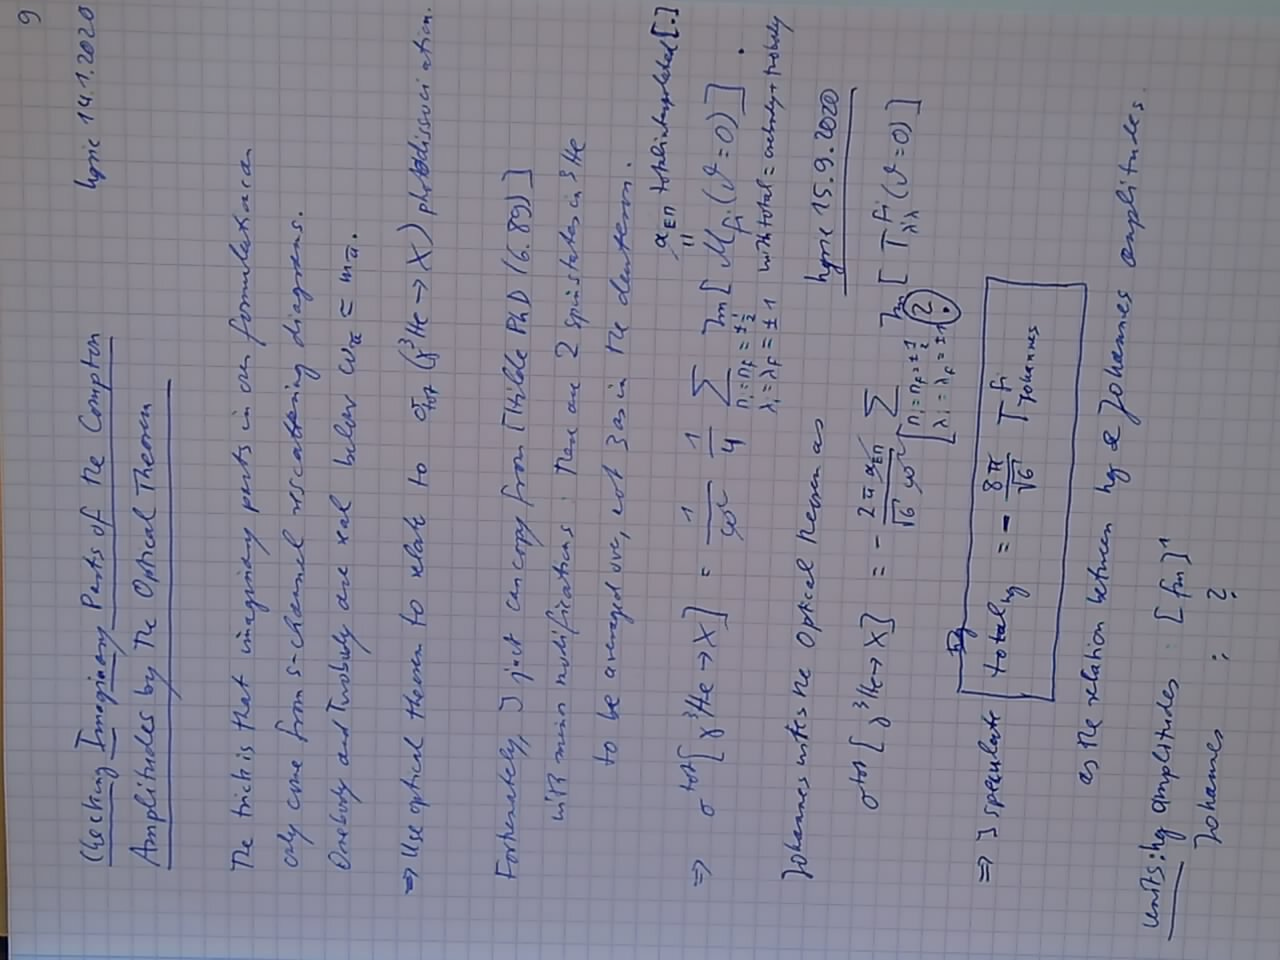 9
hgrie 14.1.2020
Checking Imaginary Parts of the Compton
Amplitudes by the Optical Theorem
The trick is that imaginary parts in our formulation can
only come from s-channel rescattering diagrams.
Onebody and Twobody are real below ω ≤ mπ.
⇒ Use optical theorem to relate to σtot (γ³He → X) photodissociation.
Fortunately, I just can copy from [Hilde PhD (6.89)]
with minor modifications: There are 2 spin states in ³He
to be averaged over, not 3 as in the deuteron.
⇒ σ^tot [γ³He → X] = 1/ω 1/4 Σ Im [ M_fi (ϑ = 0) ] .
n_i = n_f = ± 1/2
λ_i = λ_f = ± 1
α_EM total [.]
with total = onebody + twobody
Johannes writes the Optical Theorem as
hgrie 15.9.2020
σ^tot [γ³He → X] = - 2π α_EM / √6 ω Σ Im [ T^fi_λ'λ (ϑ = 0) ]
n_i = n_f = ± 1/2
λ_i = λ_f = ± 1
?
⇒ I speculate total_hg = - 8π/√6 T^fi_Johannes
as the relation between hg & Johannes amplitudes.
units: hg amplitudes : [fm]¹
Johannes : ?